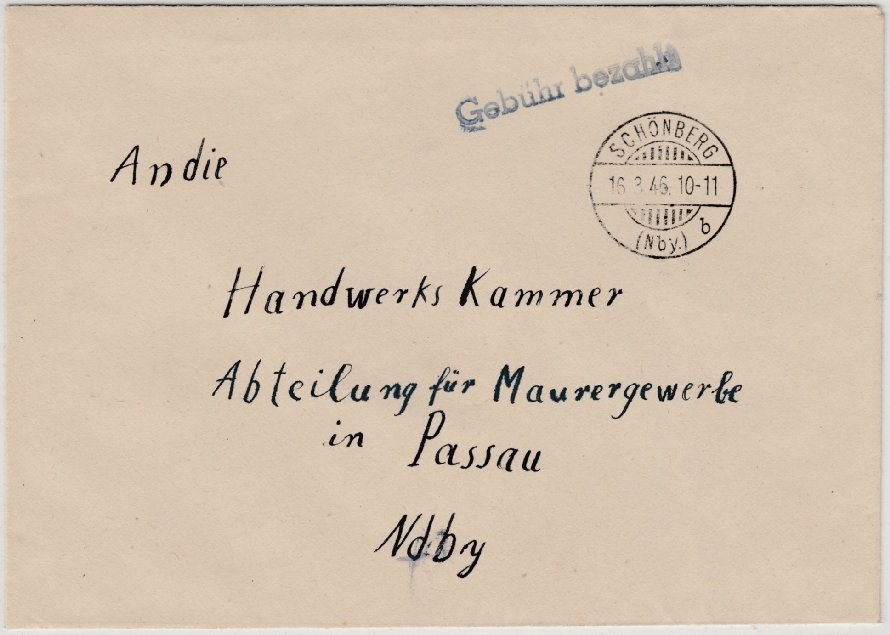 Gebühr bezahlt
SCHÖNBERG
16.3.46. 10-11
(Nby.) b
An die
Handwerks Kammer
Abteilung für Maurergewerbe
in Passau
Ndby